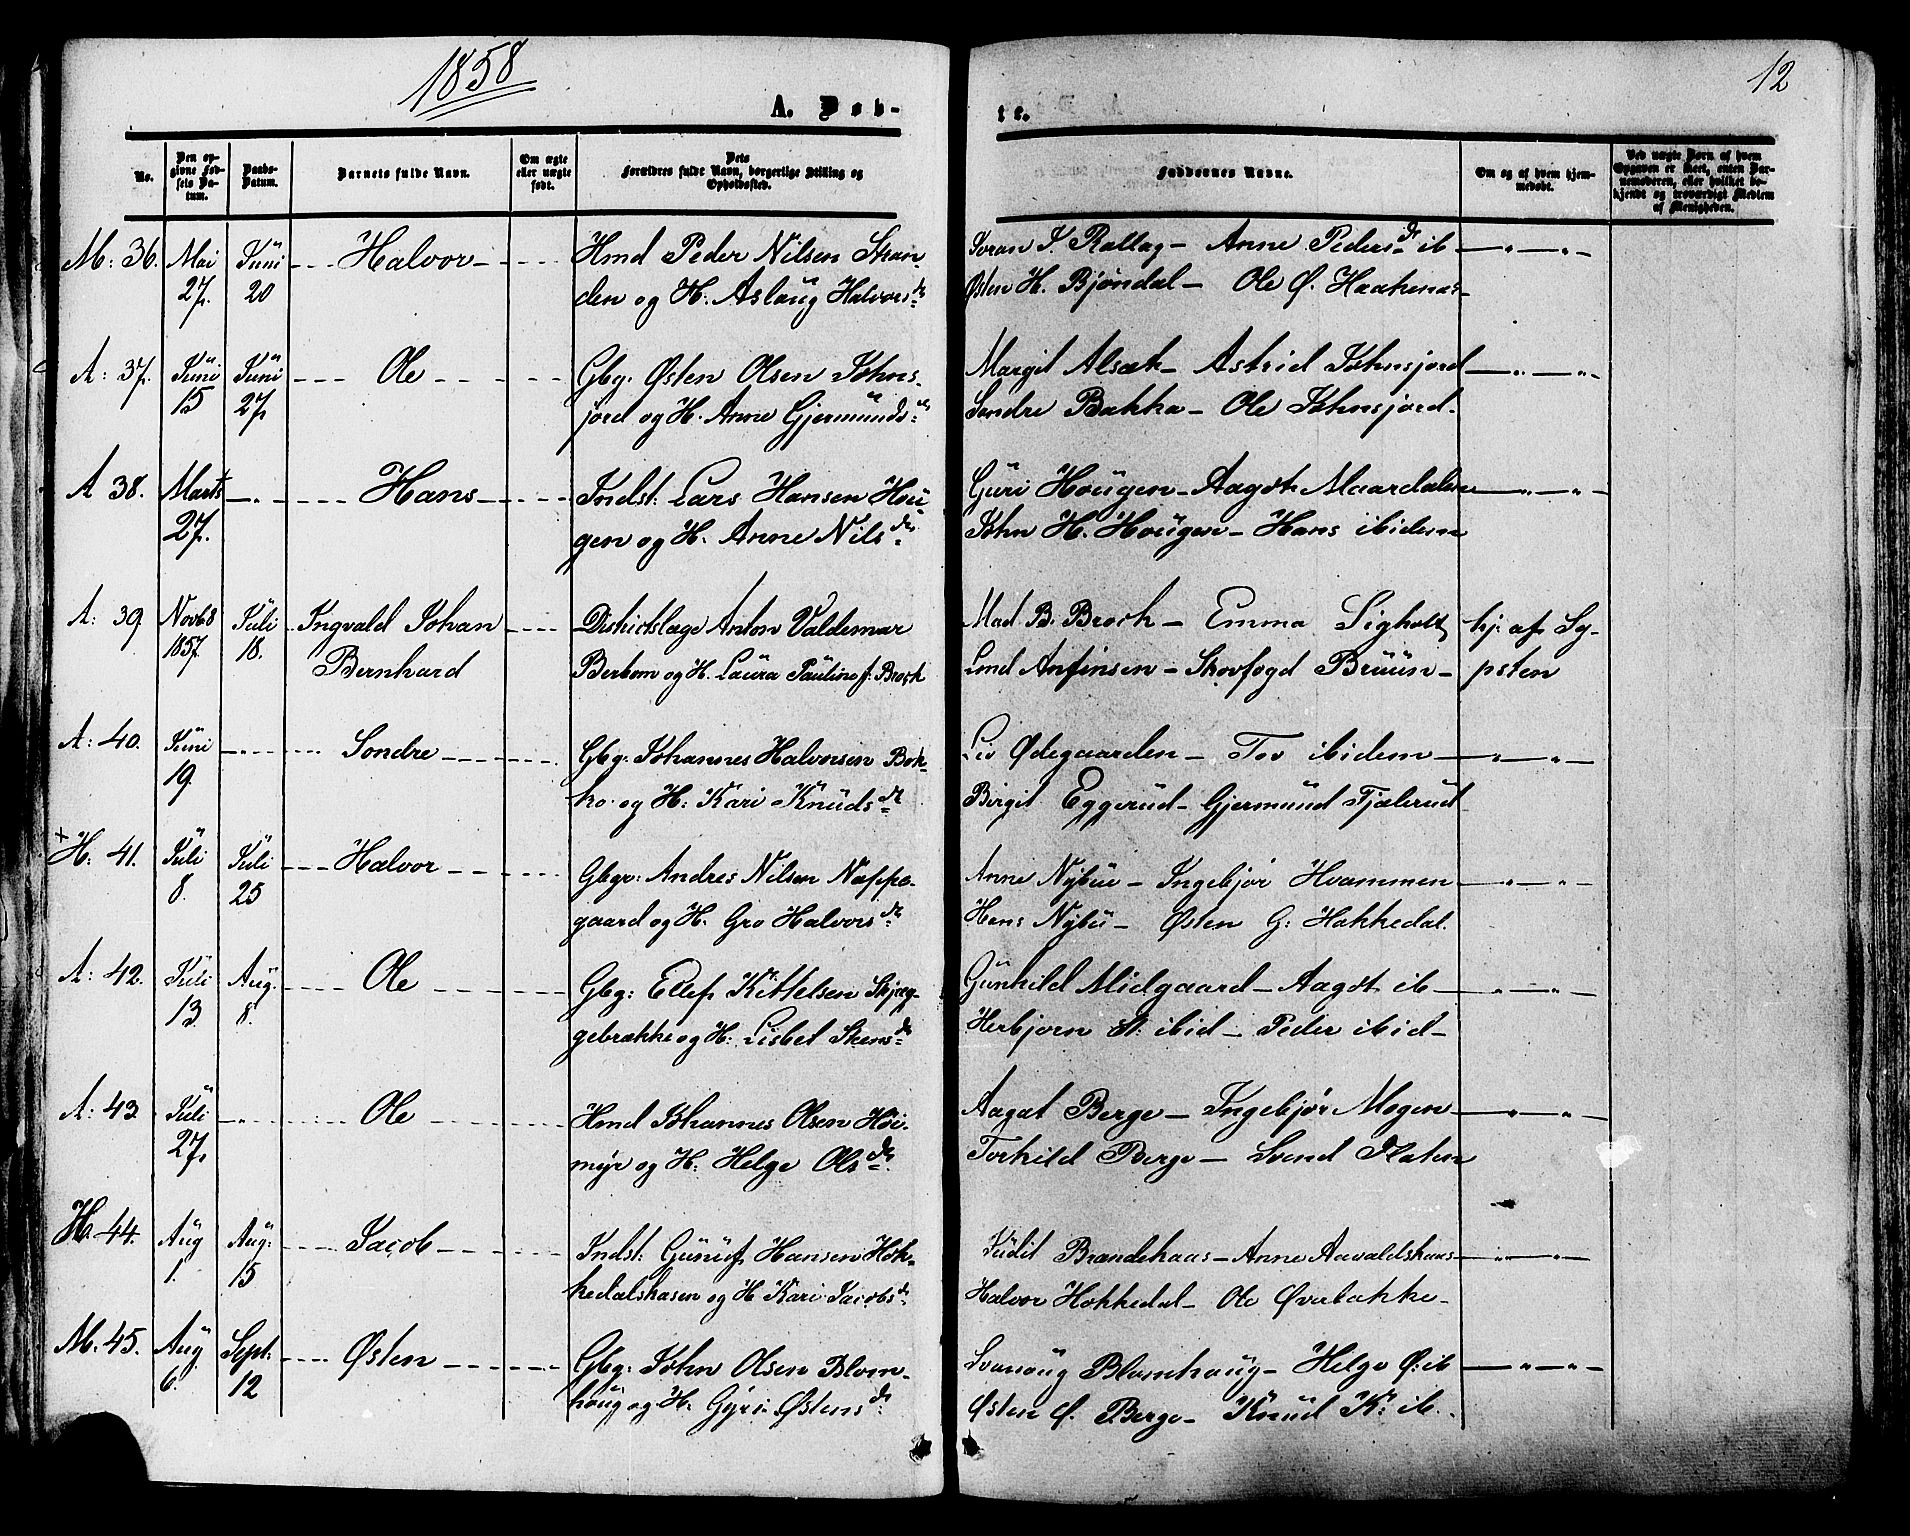 1858
12
A. Døb-
te.
No.
Den op-
givne Fød-
sels Da-
tum.
Daabs-
Datum.
Barnets fulde Navn.
Om ægte
eller uægte
født.
Dets
Forældres fulde Navn, borgerlige Stilling og
Opholdssted.
Faddernes Navne.
Om og af hvem hjem-
medøbt.
Ved uægte Børn af hvem
Opgaven er skeet, enten Bar-
nemoderen, eller hvilket be-
kjendt og troværdigt Medlem
af Menigheden.
M: 36. Mai 27. Juni 20 Halvor
Hmd Peder Nilsen Stran-
den og H. Aslaug Halvorsdr
J. Rallag - Anne Pedersdr ib
Østen H. Bjøndal - Ole Ø. Haakenaas
A: 37. Juni 15 Juni 27 Ole
Gbg: Østen Olsen Johns-
jord og H. Anne Gjermundsdr
Margit Alsæk - Astrid Johnsjord
Sondre Bakka - Ole Johnsjord.
A 38. Marts 27. " Hans
Indst: Lars Hansen Hou-
gen og H. Anne Nilsdr
Guri Hougen - Aagot Maardalen
John H. Hougen - Hans ibidem
A: 39. Novb 8 1857 Juli 18. Ingvald Johan
Bernhard
Districtslæge Anton Valdemar
Berbom og H. Laura Pauline f. Brock
Mad B. Brock - Emma Sigholt
Lmd Anfinsen - Skovfogd Bruun -
hj: af Sg-
psten
A: 40. Juni 19. " Sondre
Gbg: Johannes Halvorsen Bak-
ka og H: Kari Knudsdr
Liv Ødegaarden - Tov ibidem
Birgit Eggerud - Gjermund Fjælerud
+ H: 41. Juli 8. Juli 25 Halvor
Gbgr: Andres Nilsen Nøppe-
gaard og H. Gro Halvorsdr
Anne Nybu - Ingebjør Hvammen
Hans Nybu - Østen G: Hokkedal.
A: 42. Juli 13. Aug. 8. Ole
Gbg: Ellef Kittelsen Skjæg-
gebrække og H: Lisbet Stensdr
Gunhild Midgaard - Aagot ib
Herbjorn E: ibid - Peder ibid -
A: 43. Juli 27. " Ole
Hmd Johannes Olsen Høi-
myr og H: Helge Olsdr
Aagat Berge - Ingebjør Mogen
Torkild Berge - Svend Flaten
H. 44. Aug 1. Aug: 15 Jacob
Indst: Gunuf Hansen Hok-
kedalshasen og H Kari Jacobsdr
Judit Brændehaas - Anne Aavaldshaas
Halvor Hokkedal - Ole Øverbakke -
M: 45. Aug 6. Sept: 12 Østen
Gbg: John Olsen Blom-
houg og H. Gyri Østensdr
Svanoug Blomhaug - Helge Ø: ib
Østen Ø. Berge - Knud K: ib.